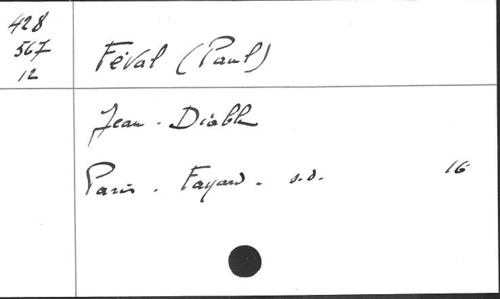 428
567
12
Féval (Paul)
Jean-Diable
Paris. Fayard. s.d. 16